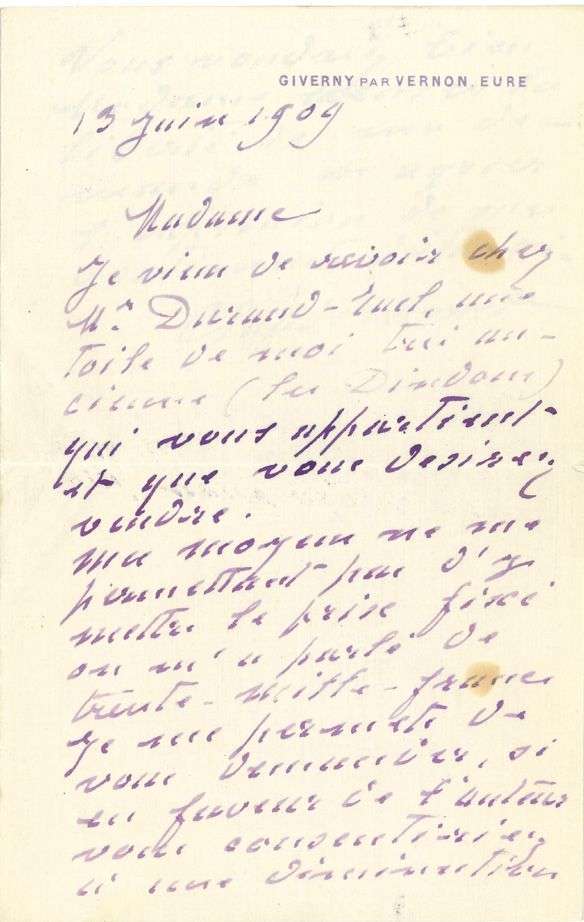 GIVERNY PAR VERNON, EURE
13 Juin 1909
Madame
Je viens de revoir chez
Mr Durand-Ruel, une
toile de moi très an-
cienne (les Dindons)
qui vous appartient
et que vous desirez
vendre.
mes moyens ne me
permettant pas d'y
mettre le prix fixé
on m'a parlé de
trente-mille-francs
Je me permets de
vous demander, si
en faveur de l'auteur
vous consentiriez
à une diminution